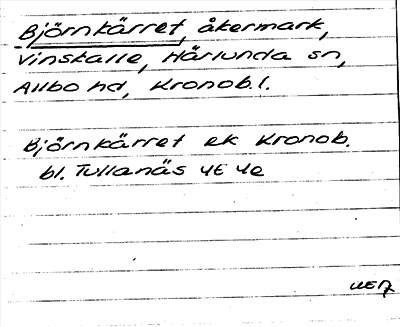 Björnkärret, åkermark,
Vinskalle, Härlunda sn,
Allbo hd, Kronob. l.
Björnkärret ek Kronob.
bl. Tullanäs 4E 4e